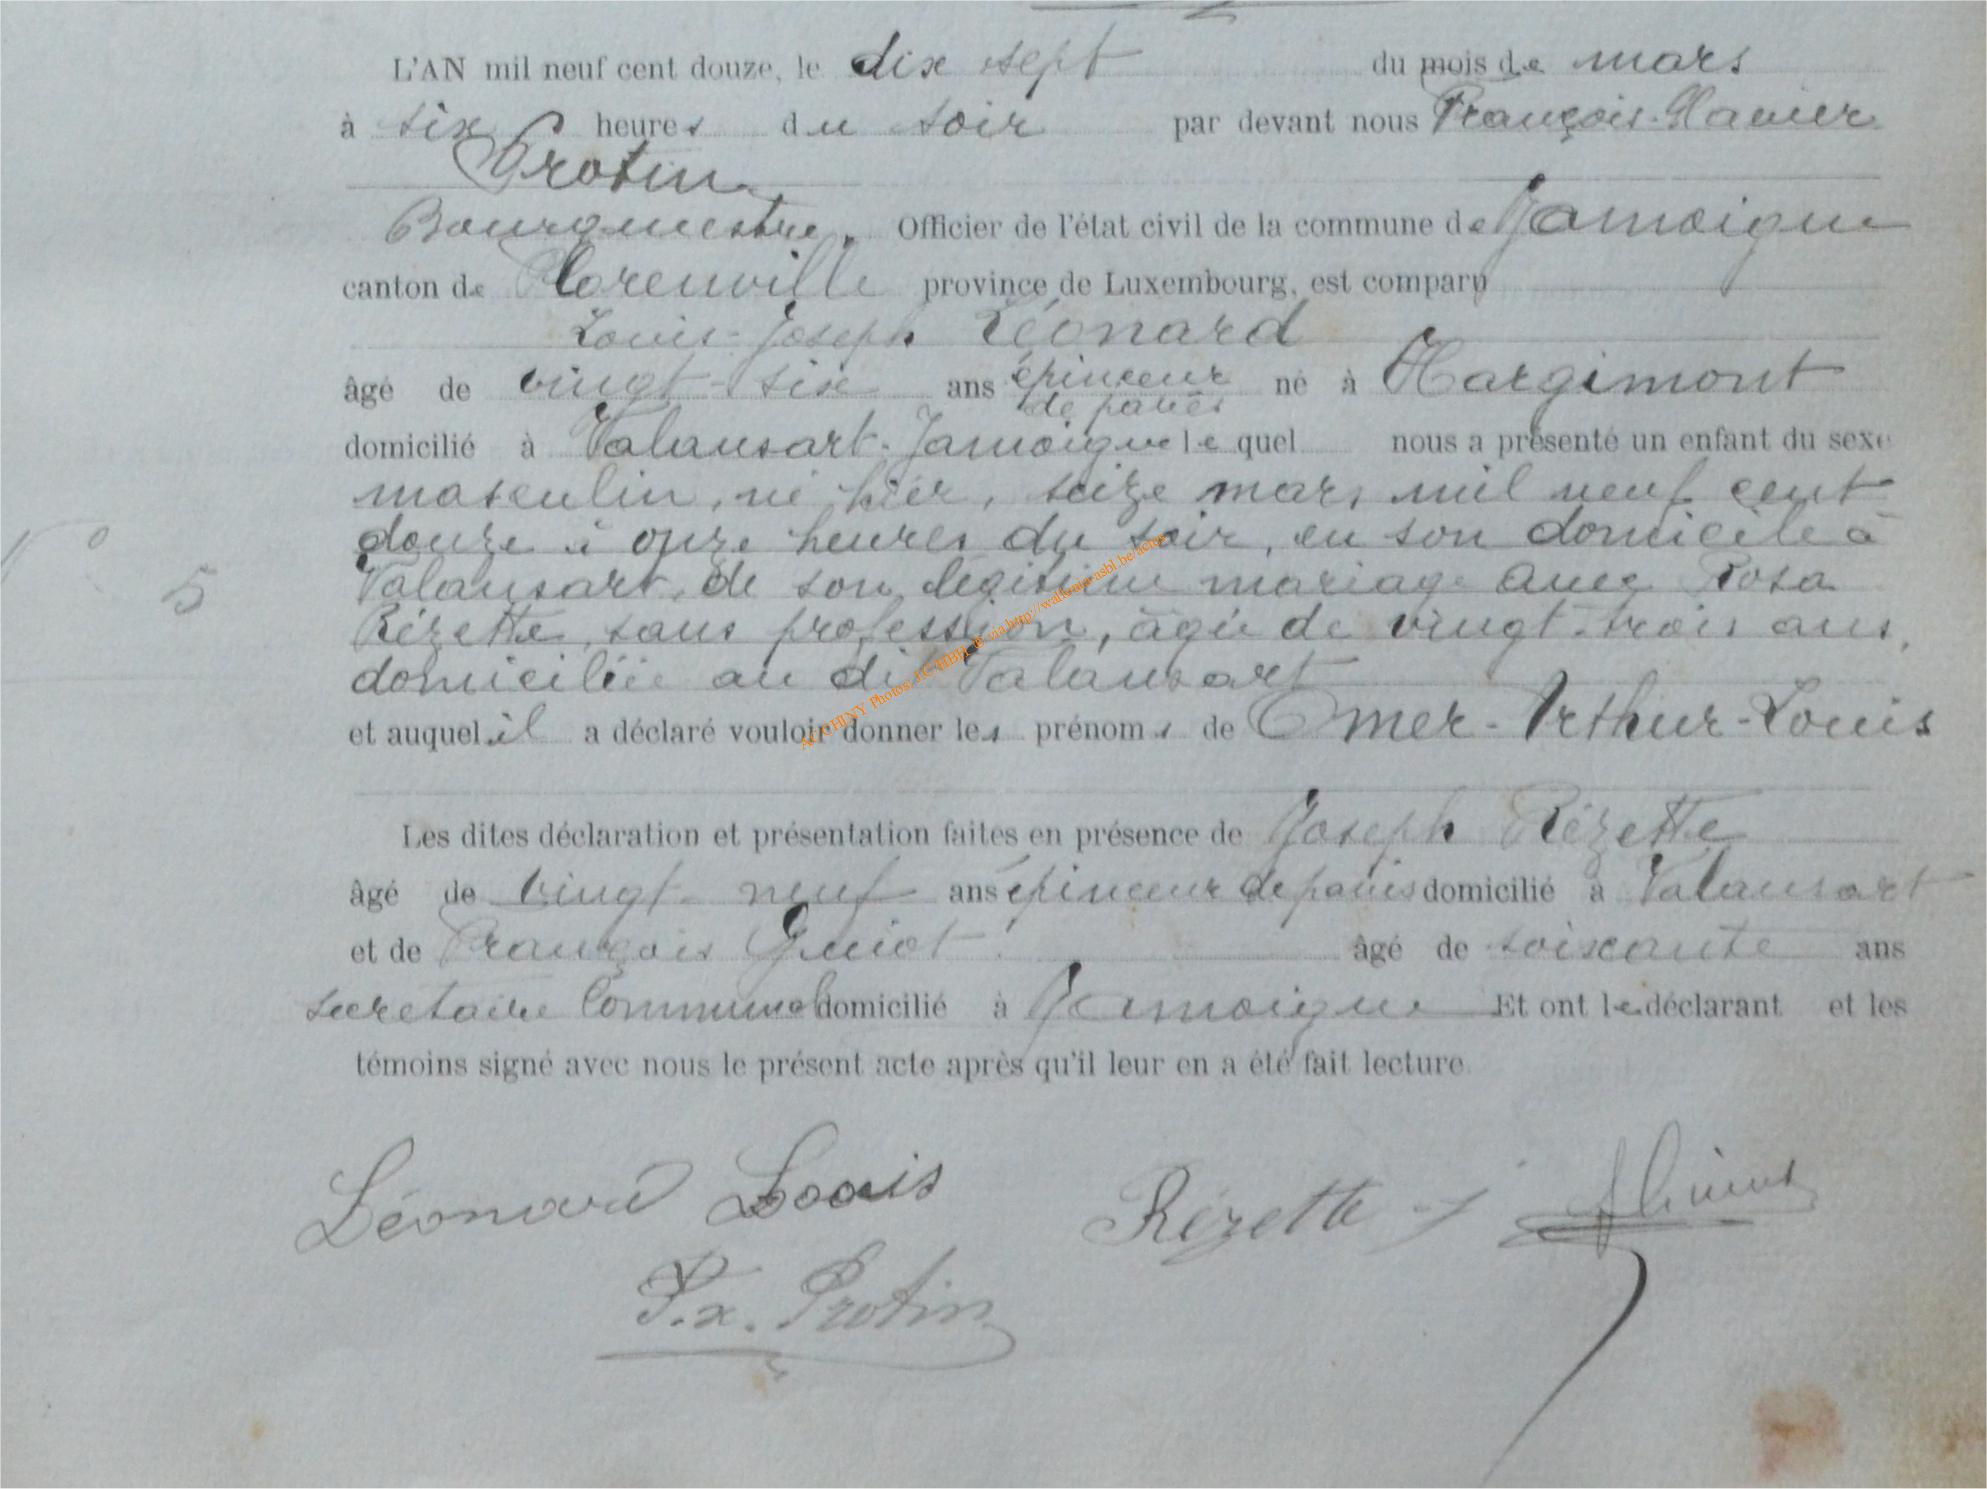 L'AN mil neuf cent douze, le dix sept du mois de mars
à six heures du soir par devant nous François-Xavier
Protin
Bourgmestre, Officier de l'état civil de la commune de Jamoigne
canton de Florenville province de Luxembourg, est comparu
Louis-Joseph Léonard
âgé de vingt-six ans épinceur né à Hargimont
de pavés
domicilié à Valansart-Jamoigne lequel nous a présenté un enfant du sexe
masculin, né hier, seize mars mil neuf cent
douze à onze heures du soir, en son domicile à
N° 5
Valansart, de son légitime mariage avec Rosa
Rézette, sans profession, âgée de vingt-trois ans,
domiciliée au dit Valansart
et auquel il a déclaré vouloir donner les prénoms de Omer-Arthur-Louis
Les dites déclaration et présentation faites en présence de Joseph Rézette
âgé de vingt-neuf ans épinceur de pavés domicilié à Valansart
et de François Guiot âgé de soixante ans
secrétaire Communal domicilié à Jamoigne Et ont le déclarant et les
témoins signé avec nous le présent acte après qu'il leur en a été fait lecture.
Léonard Louis Rézette J
F.x. Protin